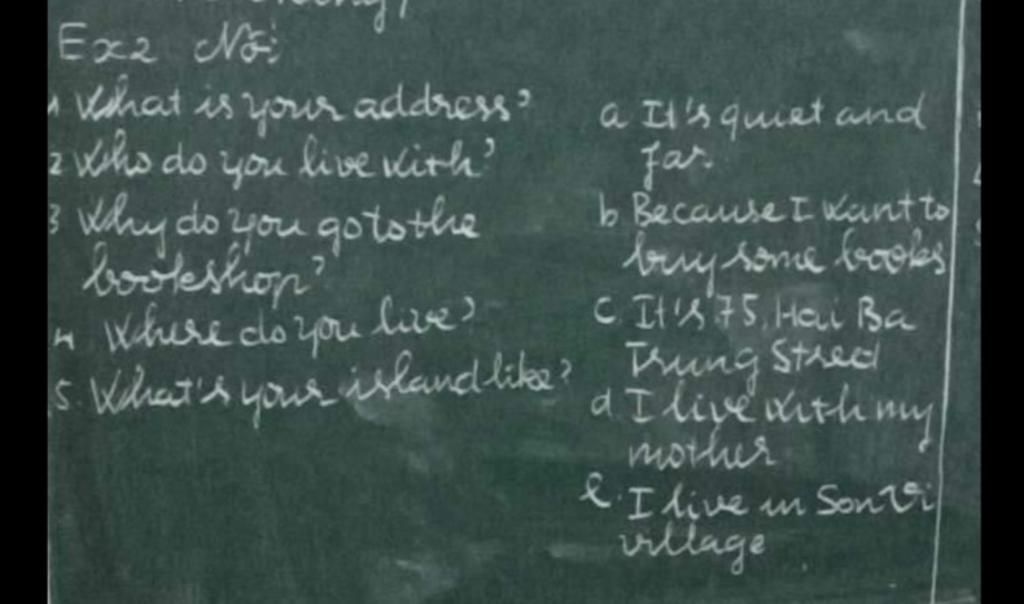 Ex2 Nối
1 What is your address?
2 Who do you live with?
3 Why do you go to the
bookshop?
4 Where do you live?
5. What's your island like?
a It's quiet and
far.
b Because I want to
buy some books
c. It's 75, Hai Ba
Trung Street
d I live with my
mother
e. I live in Son Vi
village